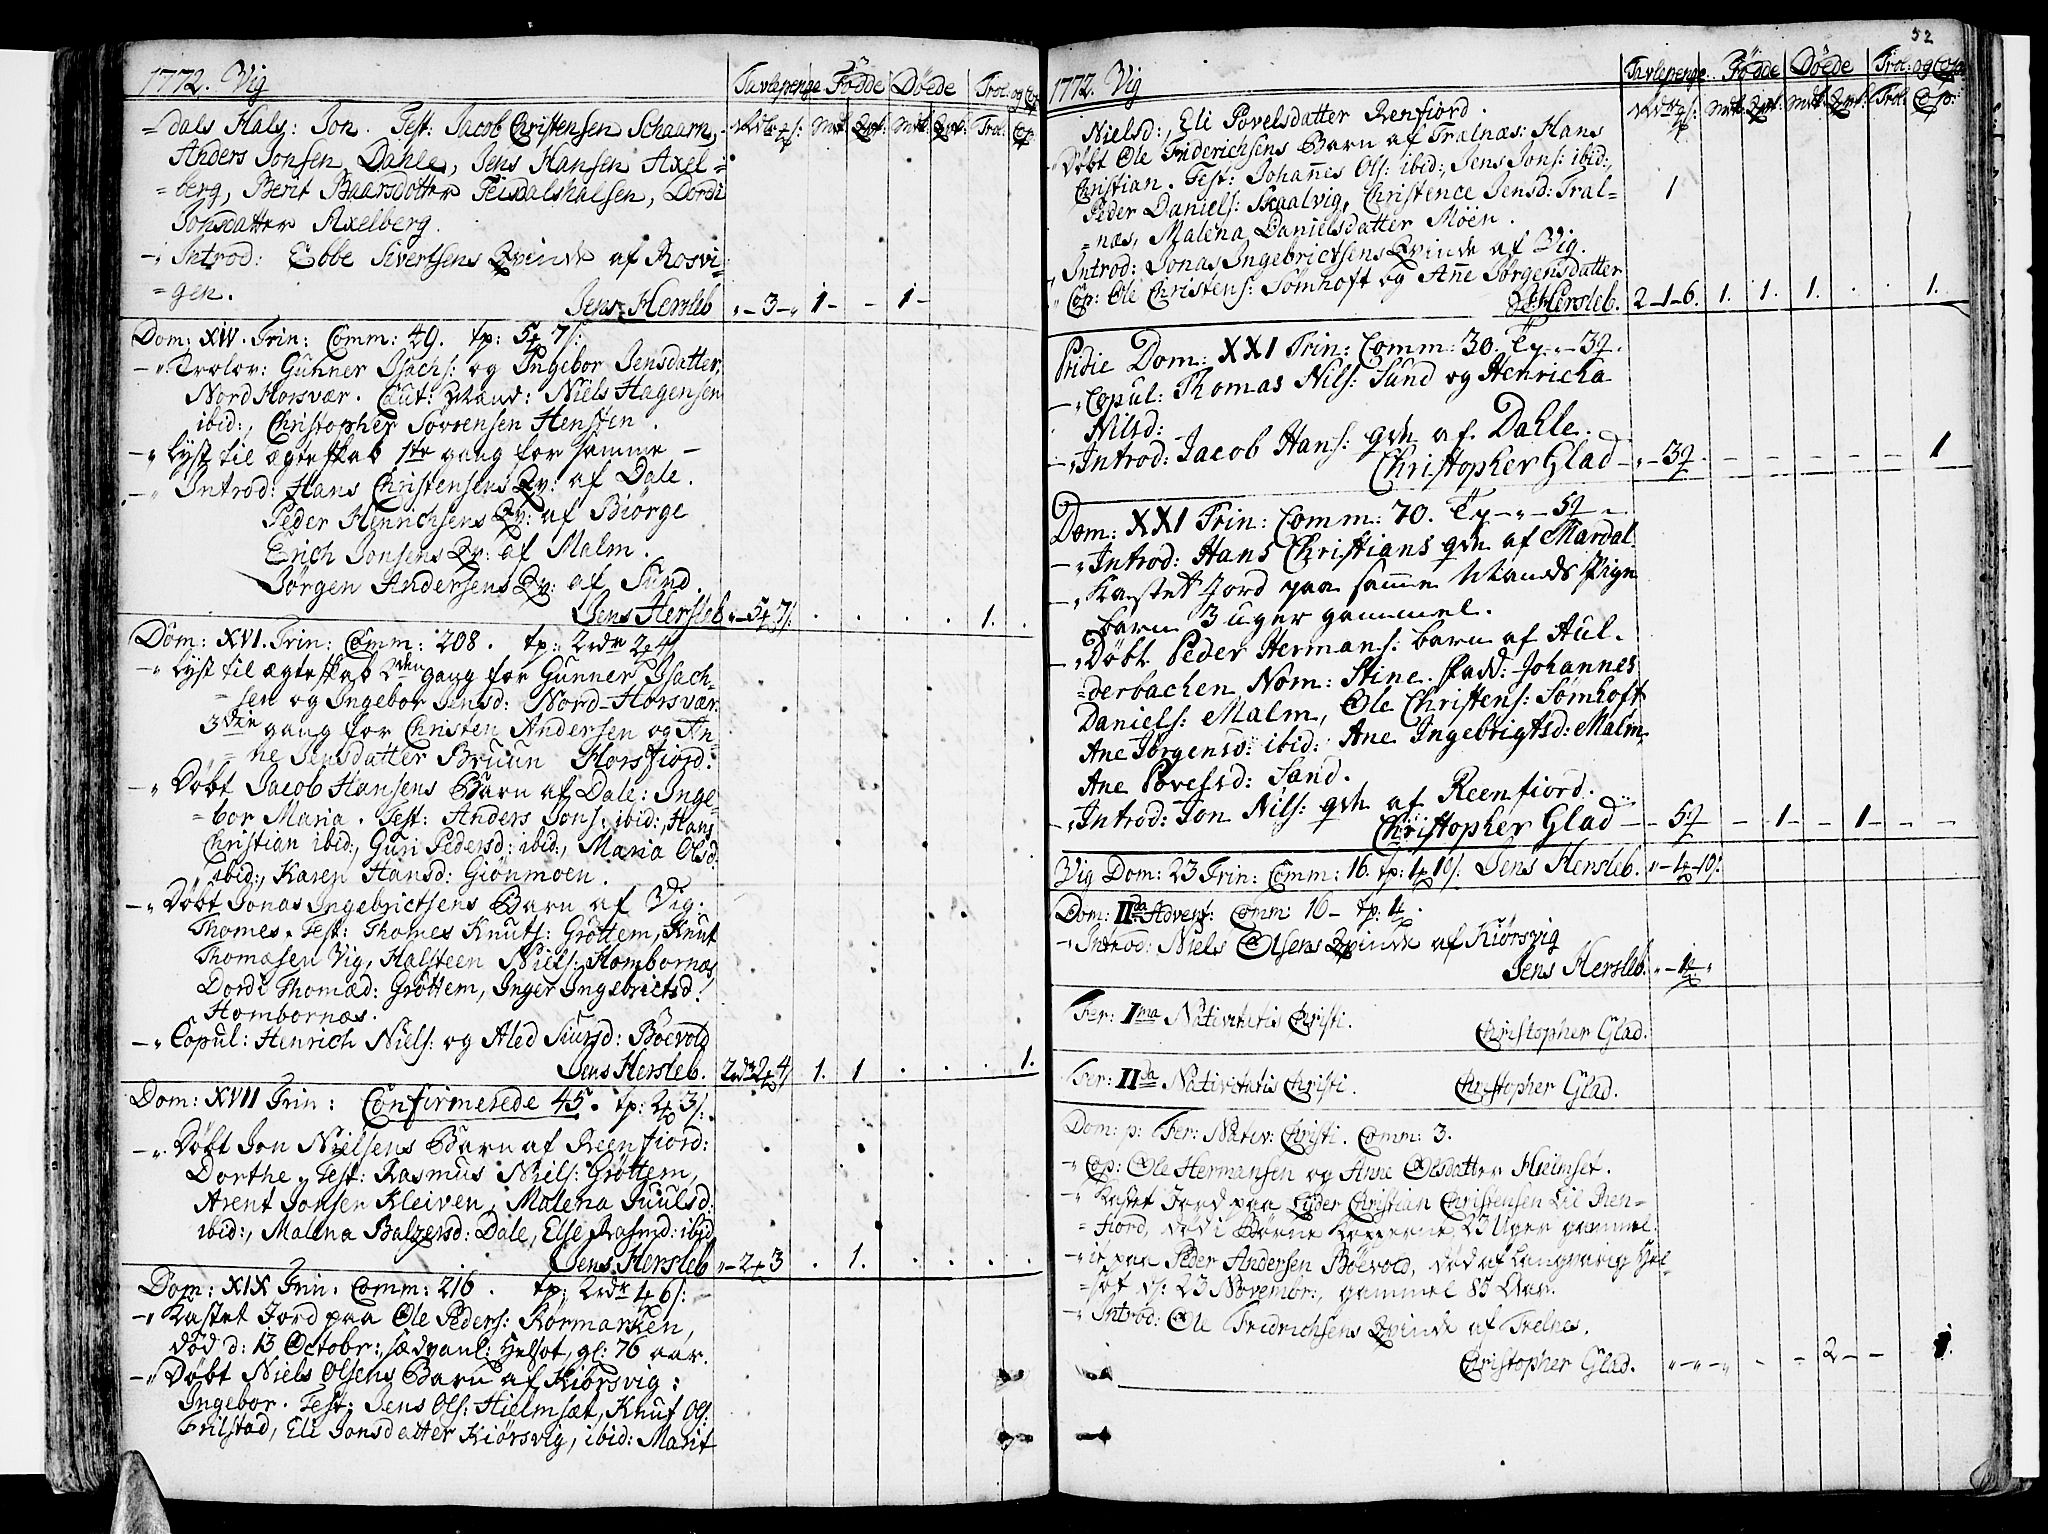 1772. Vig Tavlepenge Fødde Døede Trol: og Cop
=dals Hals: Jon. Test: Jacob Christensen Schaarn,
Anders Jonsen Dahle, Jens Hansen Axel=
=berg, Berit Baarsdotter Teisdalshalsen, Dordi
Jonsdatter Axelberg.
-" Introd: Ebbe Sivertsens Qvinde af Rosvi=
=gen.
Jens Hersleb "-3-" 1 - - 1 -
Dom: XIV. Trin: Comm: 49. tp: 5 7 s:
-" Trolov: Gunner Isachs: og Ingebor Jensdatter
Nord Horsvær. Caut: Mænd: Niels Hagensen
ibid:, Christopher Sørrensen Hensten.
-" Lyst til ægteskab 1ste gang for samme -
-" Introd: Hans Christensens Qv: af Dale.
Peder Hinrichsens Qv: af Biørge
Erich Jonsens Qv: af Malm.
Jørgen Andersens Qv: af Sund
Jens Hersleb "-5 7 s: . . . . 1. .
Dom: XVI. Trin: Comm: 208. tp: 2 rdr 2 4
-" Lyst til ægteskab 2den gang for Gunner Isach=
=sen og Ingebor Jensd: Nord-Horsvær.
3die gang for Christen Andersen og An=
=ne Jensdatter Bruun Horsfiord:
-" Døbt Jacob Hansens Barn af Dale: Inge=
=bor Maria. Test: Anders Jons: ibid:, Hans
Christian ibid:, Guri Pedersd: ibid:, Maria Olsd:
ibid:, Karen Hansd: Giönmoen.
-" Døbt Jonas Ingebrictsens Barn af Vig:
Thomes. Test: Thomes Knuts: Grøttem, Knut
Thomasen Vig, Halsteen Niels: Hombornæs
Dordi Thomæd: Grøttem, Inger Ingebrictsd:
Hombornæs.
-" Copul: Henrich Niels: og Aled Siursd: Bøevold
Jens Hersleb. 2 rdr 2 4 1. 1 . . . 1.
Dom: XVII Trin: Confirmerede 45. tp: 2 3 s:
-" Døbt Jon Nielsens Barn af Reenfiord:
Dorthe. Test: Rasmus Niels: Grøttem,
Arent Jonsen Kleiven, Malena Juulsd:
ibid:, Malena Balzersd: Dale, Else Rasmd: ibid
Jens Hersleb "-2 3 . 1. . . . .
Dom: XIX Trin: Comm: 216. tp: 2 rdr 4 6 s:
-" Kastet Jord paa Ole Peders: Kørmarken,
død d: 13 Octobr:, sædvanl: Helsot, gl: 76 aar.
-" Døbt Niels Olsens Barn af Kiørsvig:
Ingebor. Test: Jens Ols: Hielmsæt, Knut Ols:
Trilstad, Eli Jonsdatter Kiørsvig, ibid: Marit
52
1772. Vig Tavlepenge Fødde Døede Trol: og Cop
Nielsd:, Eli Povelsdatter Renfiord.
Døbt Ole Friderichsens Barn af Tralnæs: Hans
Christian. Test: Johannes Ols: ibid:, Jens Jons: ibid:,
Peder Daniels: Skaalvig, Christence Jensd: Tral=
=næs, Malena Danielsdatter Møen.
Introd: Jonas Ingebrictsens Qvinde af Vig.
" Cop: Ole Christens: Sømhoft og Anne Jørgensdatter
Hersleb. 2-1-6. 1. 1. 1. . . 1.
Pridie Dom: XXI Trin: Comm: 30. Tp. - 3
-" Copul: Thomas Nils: Sund og Henricha
Nilsd:
-" Introd: Jacob Hans: qvh af Dahle.
Christopher Glad -"- 3 - - - - - 1
Dom: XXI Trin: Comm: 70. Tp - " - 5
-" Introd: Hans Christians qvh af Mardal.
-" Kastet Jord paa samme Mands Pige
barn 3 uger gammel.
-" Døbt Peder Hermans: barn af Aul-
=derbachen Nom: Stine. Fadd: Johannes
Daniels: Malm, Ole Christens: Sømhoft
Ane Jørgensd: ibid: Ane Ingebrigtsd: Malm.
Ane Povelsd: Sand.
-" Introd: Jon Nils: qvh af Reenfiord.
Christopher Glad - - 5 - 1 - 1 - -
Vig Dom: 23 Trin: Comm: 16. tp: 1 10 s: Jens Hersleb. "-1-10 s:
Dom: IIda Advent: Comm: 16- tp: 1
-" Introd: Niels Olsens Qvinde af Kiørsvig
Jens Hersleb. "-1-"
Fer: Ima Nativitatis Christi. Christopher Glad.
Fer: IIda Nativitatis Christi. Christopher Glad.
Dom: p: Fer: Nativ: Christi. Comm: 3.
-" Cop: Ole Hermansen og Anne Olsdatter Hielmset.
-" Kastet Jord paa Lyder Christian Christensen lil Ren=
=fiord, død i Børne Kopperne, 23 Uger gammel.
-" it paa Peder Andersen Bøevold, død af Langvarig Hel=
=sot d: 23 Novembr:, gammel 85 Aar.
-" Introd: Ole Fredrichsens Qvinde af Trelnes.
Christopher Glad. "-"-" - - 2 - - 1.